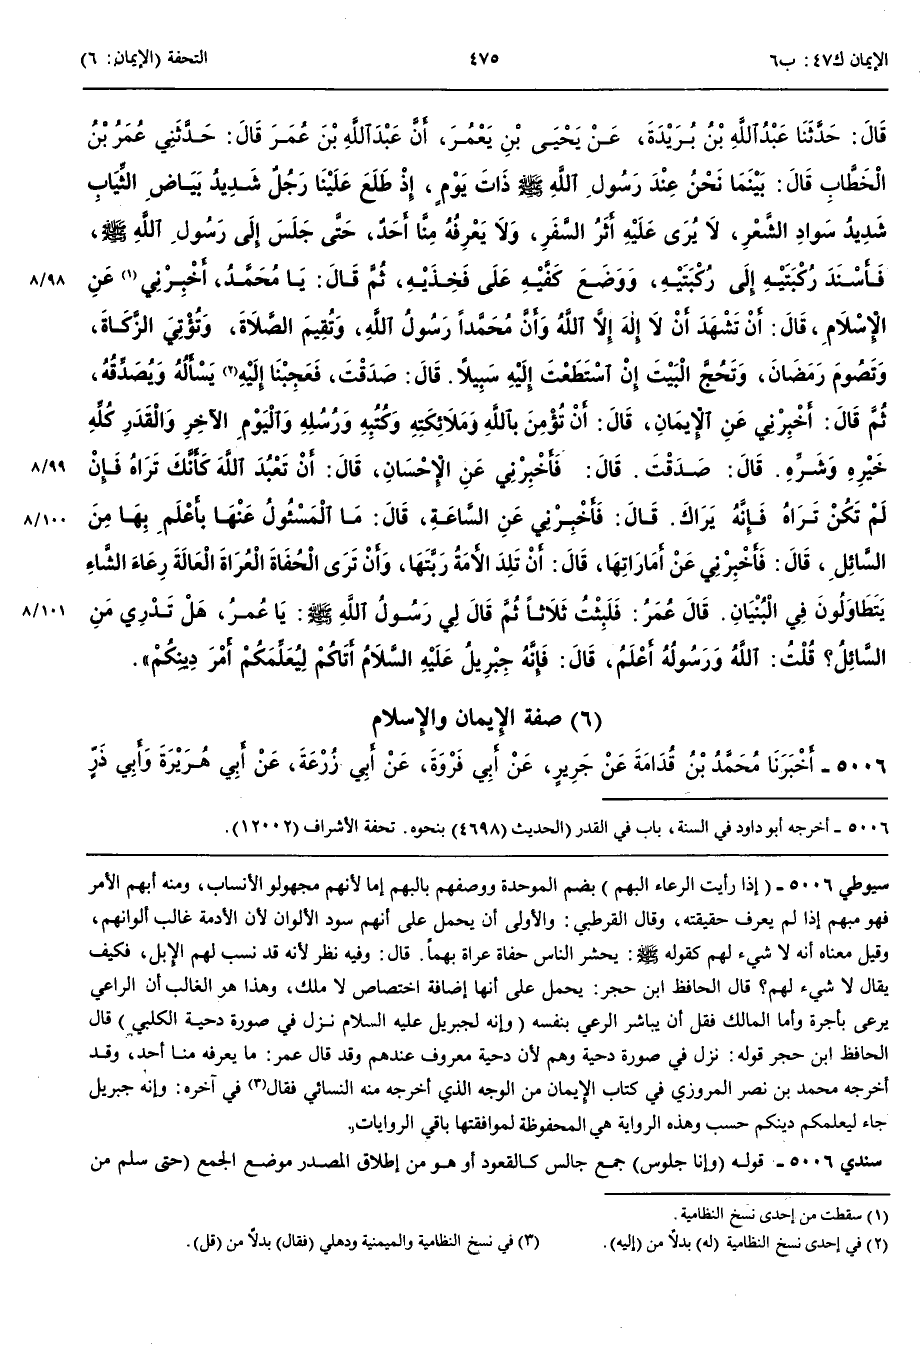 الإيمان ك٤٧: ب٦ ٤٧٥ التحفة (الإيمان: ٦)
قَالَ: حَدَّثَنَا عَبْدُاللَّهِ بْنُ بُرَيْدَةَ، عَنْ يَحْيَى بْنِ يَعْمُرَ، أَنَّ عَبْدَاللَّهِ بْنَ عُمَرَ قَالَ: حَدَّثَنِي عُمَرُ بْنُ
الْخَطَّابِ قَالَ: بَيْنَمَا نَحْنُ عِنْدَ رَسُولِ اللَّهِ ﷺ ذَاتَ يَوْمٍ، إِذْ طَلَعَ عَلَيْنَا رَجُلٌ شَدِيدُ بَيَاضِ الثِّيَابِ
شَدِيدُ سَوَادِ الشَّعْرِ، لَا يُرَى عَلَيْهِ أَثَرُ السَّفَرِ، وَلَا يَعْرِفُهُ مِنَّا أَحَدٌ، حَتَّى جَلَسَ إِلَى رَسُولِ اللَّهِ ﷺ،
فَأَسْنَدَ رُكْبَتَيْهِ إِلَى رُكْبَتَيْهِ، وَوَضَعَ كَفَّيْهِ عَلَى فَخِذَيْهِ، ثُمَّ قَالَ: يَا مُحَمَّدُ، أَخْبِرْنِي (١) عَنِ ٨/٩٨
الْإِسْلَامِ، قَالَ: أَنْ تَشْهَدَ أَنْ لَا إِلٰهَ إِلَّا اللَّهُ وَأَنَّ مُحَمَّداً رَسُولُ اللَّهِ، وَتُقِيمَ الصَّلَاةَ، وَتُؤْتِيَ الزَّكَاةَ،
وَتَصُومَ رَمَضَانَ، وَتَحُجَّ الْبَيْتَ إِنْ اسْتَطَعْتَ إِلَيْهِ سَبِيلًا. قَالَ: صَدَقْتَ، فَعَجِبْنَا إِلَيْهِ(٢) يَسْأَلُهُ وَيُصَدِّقُهُ،
ثُمَّ قَالَ: أَخْبِرْنِي عَنِ الْإِيمَانِ، قَالَ: أَنْ تُؤْمِنَ بِاللَّهِ وَمَلَائِكَتِهِ وَكُتُبِهِ وَرُسُلِهِ وَالْيَوْمِ الْآخِرِ وَالْقَدَرِ كُلِّهِ
خَيْرِهِ وَشَرِّهِ. قَالَ: صَدَقْتَ. قَالَ: فَأَخْبِرْنِي عَنِ الْإِحْسَانِ، قَالَ: أَنْ تَعْبُدَ اللَّهَ كَأَنَّكَ تَرَاهُ فَإِنْ ٨/٩٩
لَمْ تَكُنْ تَرَاهُ فَإِنَّهُ يَرَاكَ. قَالَ: فَأَخْبِرْنِي عَنِ السَّاعَةِ، قَالَ: مَا الْمَسْئُولُ عَنْهَا بِأَعْلَمِ بِهَا مِنَ ٨/١٠٠
السَّائِلِ، قَالَ: فَأَخْبِرْنِي عَنْ أَمَارَاتِهَا، قَالَ: أَنْ تَلِدَ الْأَمَةُ رَبَّتَهَا، وَأَنْ تَرَى الْحُفَاةَ الْعُرَاةَ الْعَالَةَ رِعَاءَ الشَّاءِ
يَتَطَاوَلُونَ فِي الْبُنْيَانِ. قَالَ عُمَرُ: فَلَبِثْتُ ثَلَاثاً ثُمَّ قَالَ لِي رَسُولُ اللَّهِ ﷺ: يَا عُمَرُ، هَلْ تَدْرِي مَنِ ٨/١٠١
السَّائِلُ؟ قُلْتُ: اللَّهُ وَرَسُولُهُ أَعْلَمُ، قَالَ: فَإِنَّهُ جِبْرِيلُ عَلَيْهِ السَّلَامُ أَتَاكُمْ لِيُعَلِّمَكُمْ أَمْرَ دِينِكُمْ».
(٦) صفة الإيمان والإسلام
٥٠٠٦ ـ أَخْبَرَنَا مُحَمَّدُ بْنُ قُدَامَةَ عَنْ جَرِيرٍ، عَنْ أَبِي فَرْوَةَ، عَنْ أَبِي زُرْعَةَ، عَنْ أَبِي هُرَيْرَةَ وَأَبِي ذَرٍّ
٥٠٠٦ ـ أخرجه أبو داود في السنة، باب في القدر (الحديث ٤٦٩٨) بنحوه. تحفة الأشراف (١٢٠٠٢).
سيوطي ٥٠٠٦ ـ ( إذا رأيت الرعاء البهم ) بضم الموحدة ووصفهم بالبهم إما لأنهم مجهولو الأنساب، ومنه أبهم الأمر
فهو مبهم إذا لم يعرف حقيقته، وقال القرطبي: والأولى أن يحمل على أنهم سود الألوان لأن الأدمة غالب ألوانهم،
وقيل معناه أنه لا شيء لهم كقوله ﷺ: يحشر الناس حفاة عراة بهماً. قال: وفيه نظر لأنه قد نسب لهم الإبل، فكيف
يقال لا شيء لهم؟ قال الحافظ ابن حجر: يحمل على أنها إضافة اختصاص لا ملك، وهذا هو الغالب أن الراعي
يرعى بأجرة وأما المالك فقل أن يباشر الرعي بنفسه ( وإنه لجبريل عليه السلام نزل في صورة دحية الكلبي ) قال
الحافظ ابن حجر قوله: نزل في صورة دحية وهم لأن دحية معروف عندهم وقد قال عمر: ما يعرفه منا أحد، وقد
أخرجه محمد بن نصر المروزي في كتاب الإيمان من الوجه الذي أخرجه منه النسائي فقال(٣) في آخره: وإنه جبريل
جاء ليعلمكم دينكم حسب وهذه الرواية هي المحفوظة لموافقتها باقي الروايات.
سندي ٥٠٠٦ ـ قوله (وإنا جلوس) جمع جالس كالقعود أو هو من إطلاق المصدر موضع الجمع (حتى سلم من
(١) سقطت من إحدى نسخ النظامية.
(٢) في إحدى نسخ النظامية (له) بدلاً من (إليه). (٣) في نسخ النظامية والميمنية ودهلي (فقال) بدلاً من (قل).